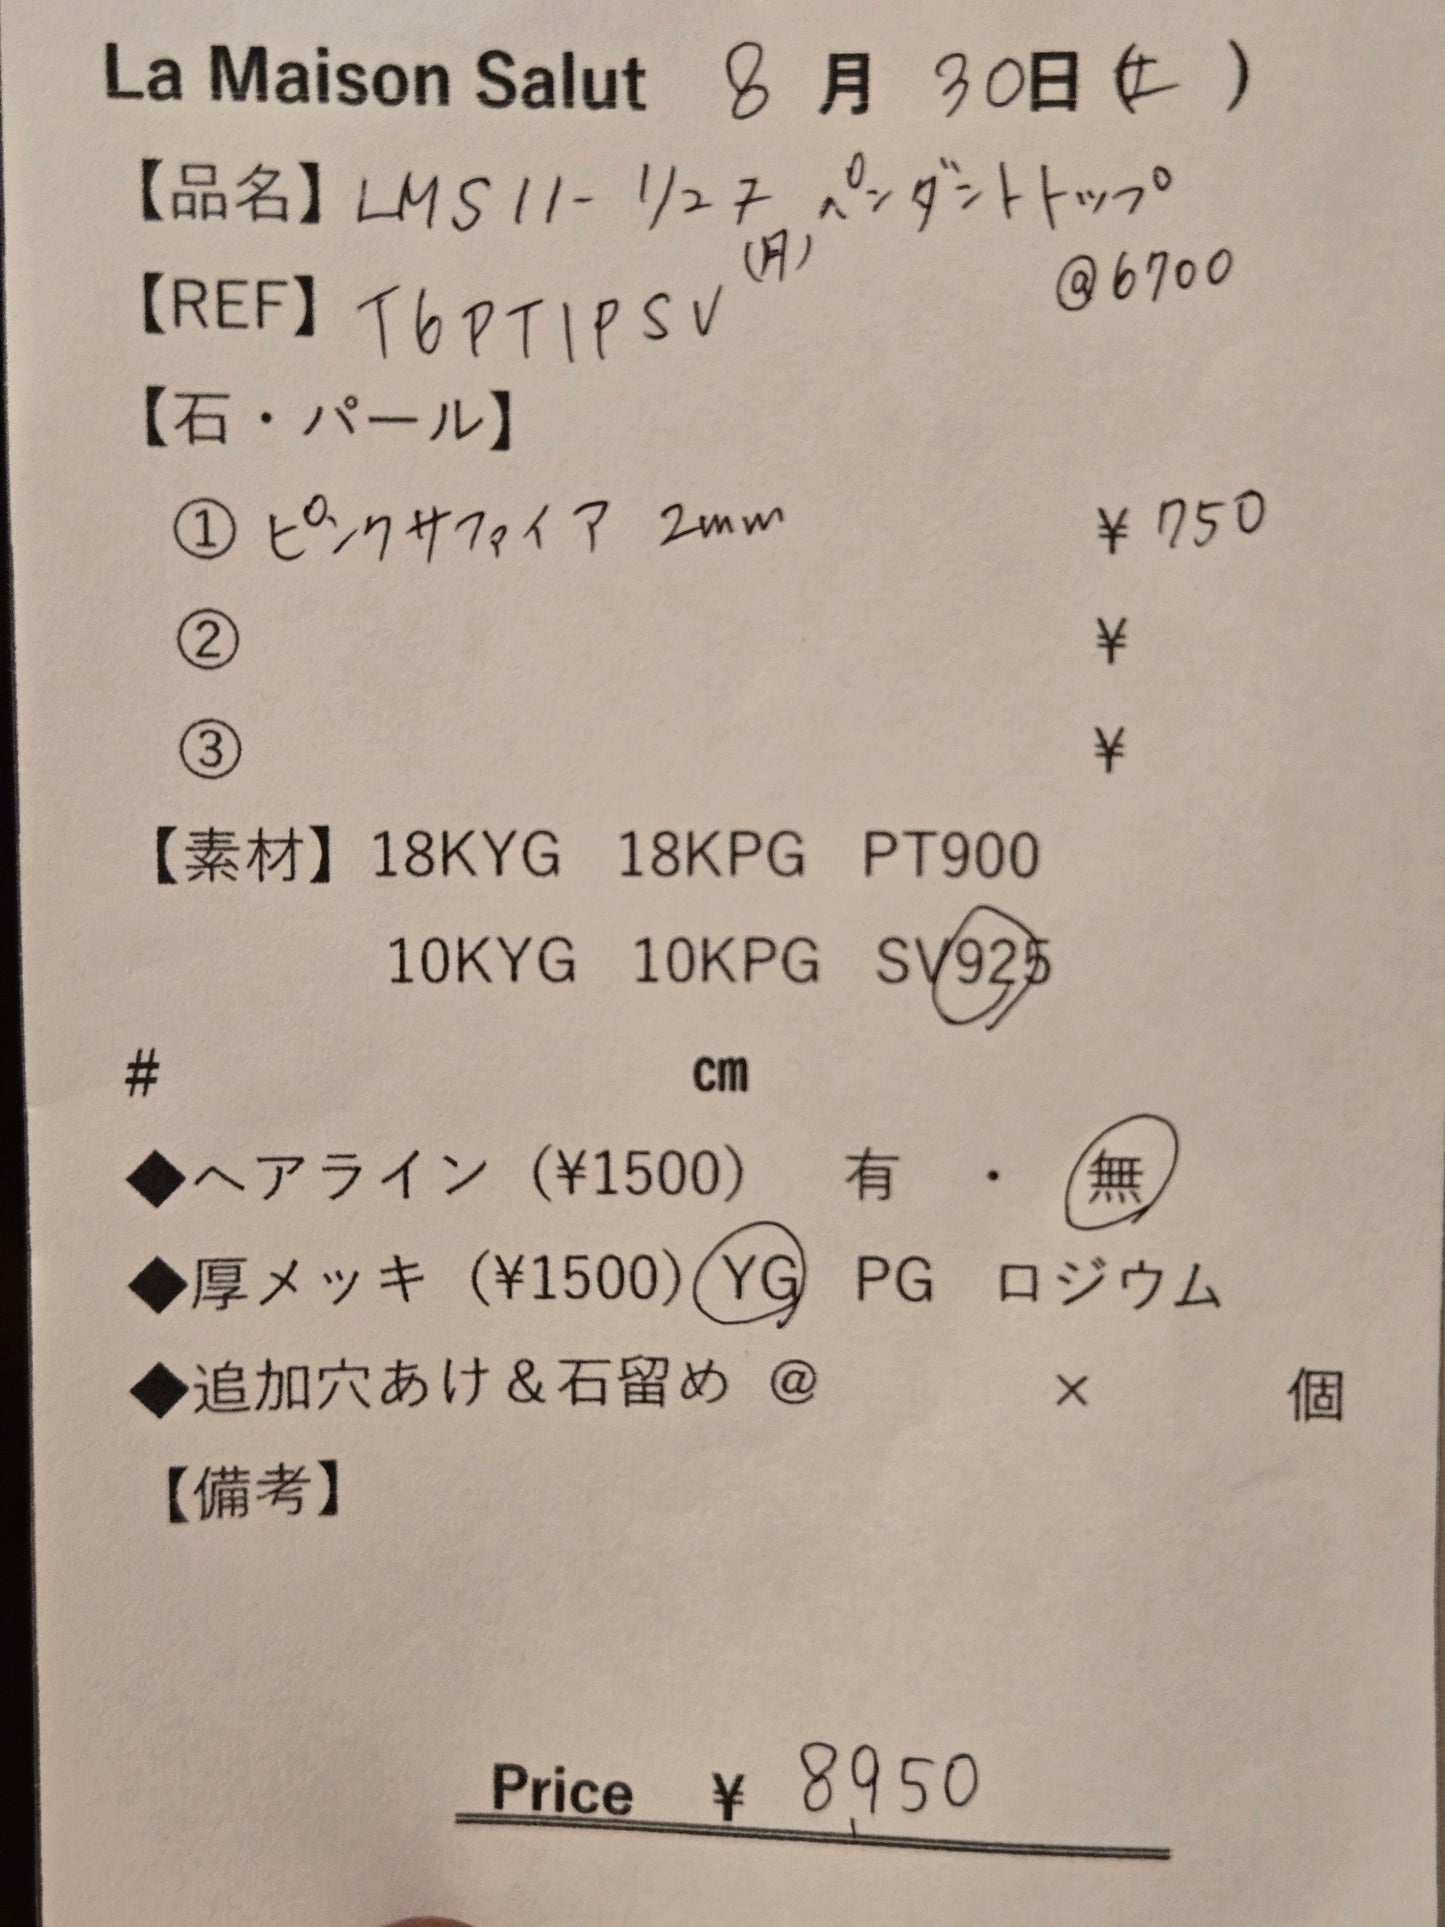 La Maison Salut 8 月 30日 (土)
【品名】LMS11-1/27 ペンダントトップ
(月)
@6700
【REF】T6PT1PSV
【石・パール】
① ピンクサファイア 2mm ¥750
② ¥
③ ¥
【素材】18KYG 18KPG PT900
10KYG 10KPG SV925
# cm
◆ヘアライン (¥1500) 有 ・ 無
◆厚メッキ (¥1500) YG PG ロジウム
◆追加穴あけ&石留め @ × 個
【備考】
Price ¥ 8,950